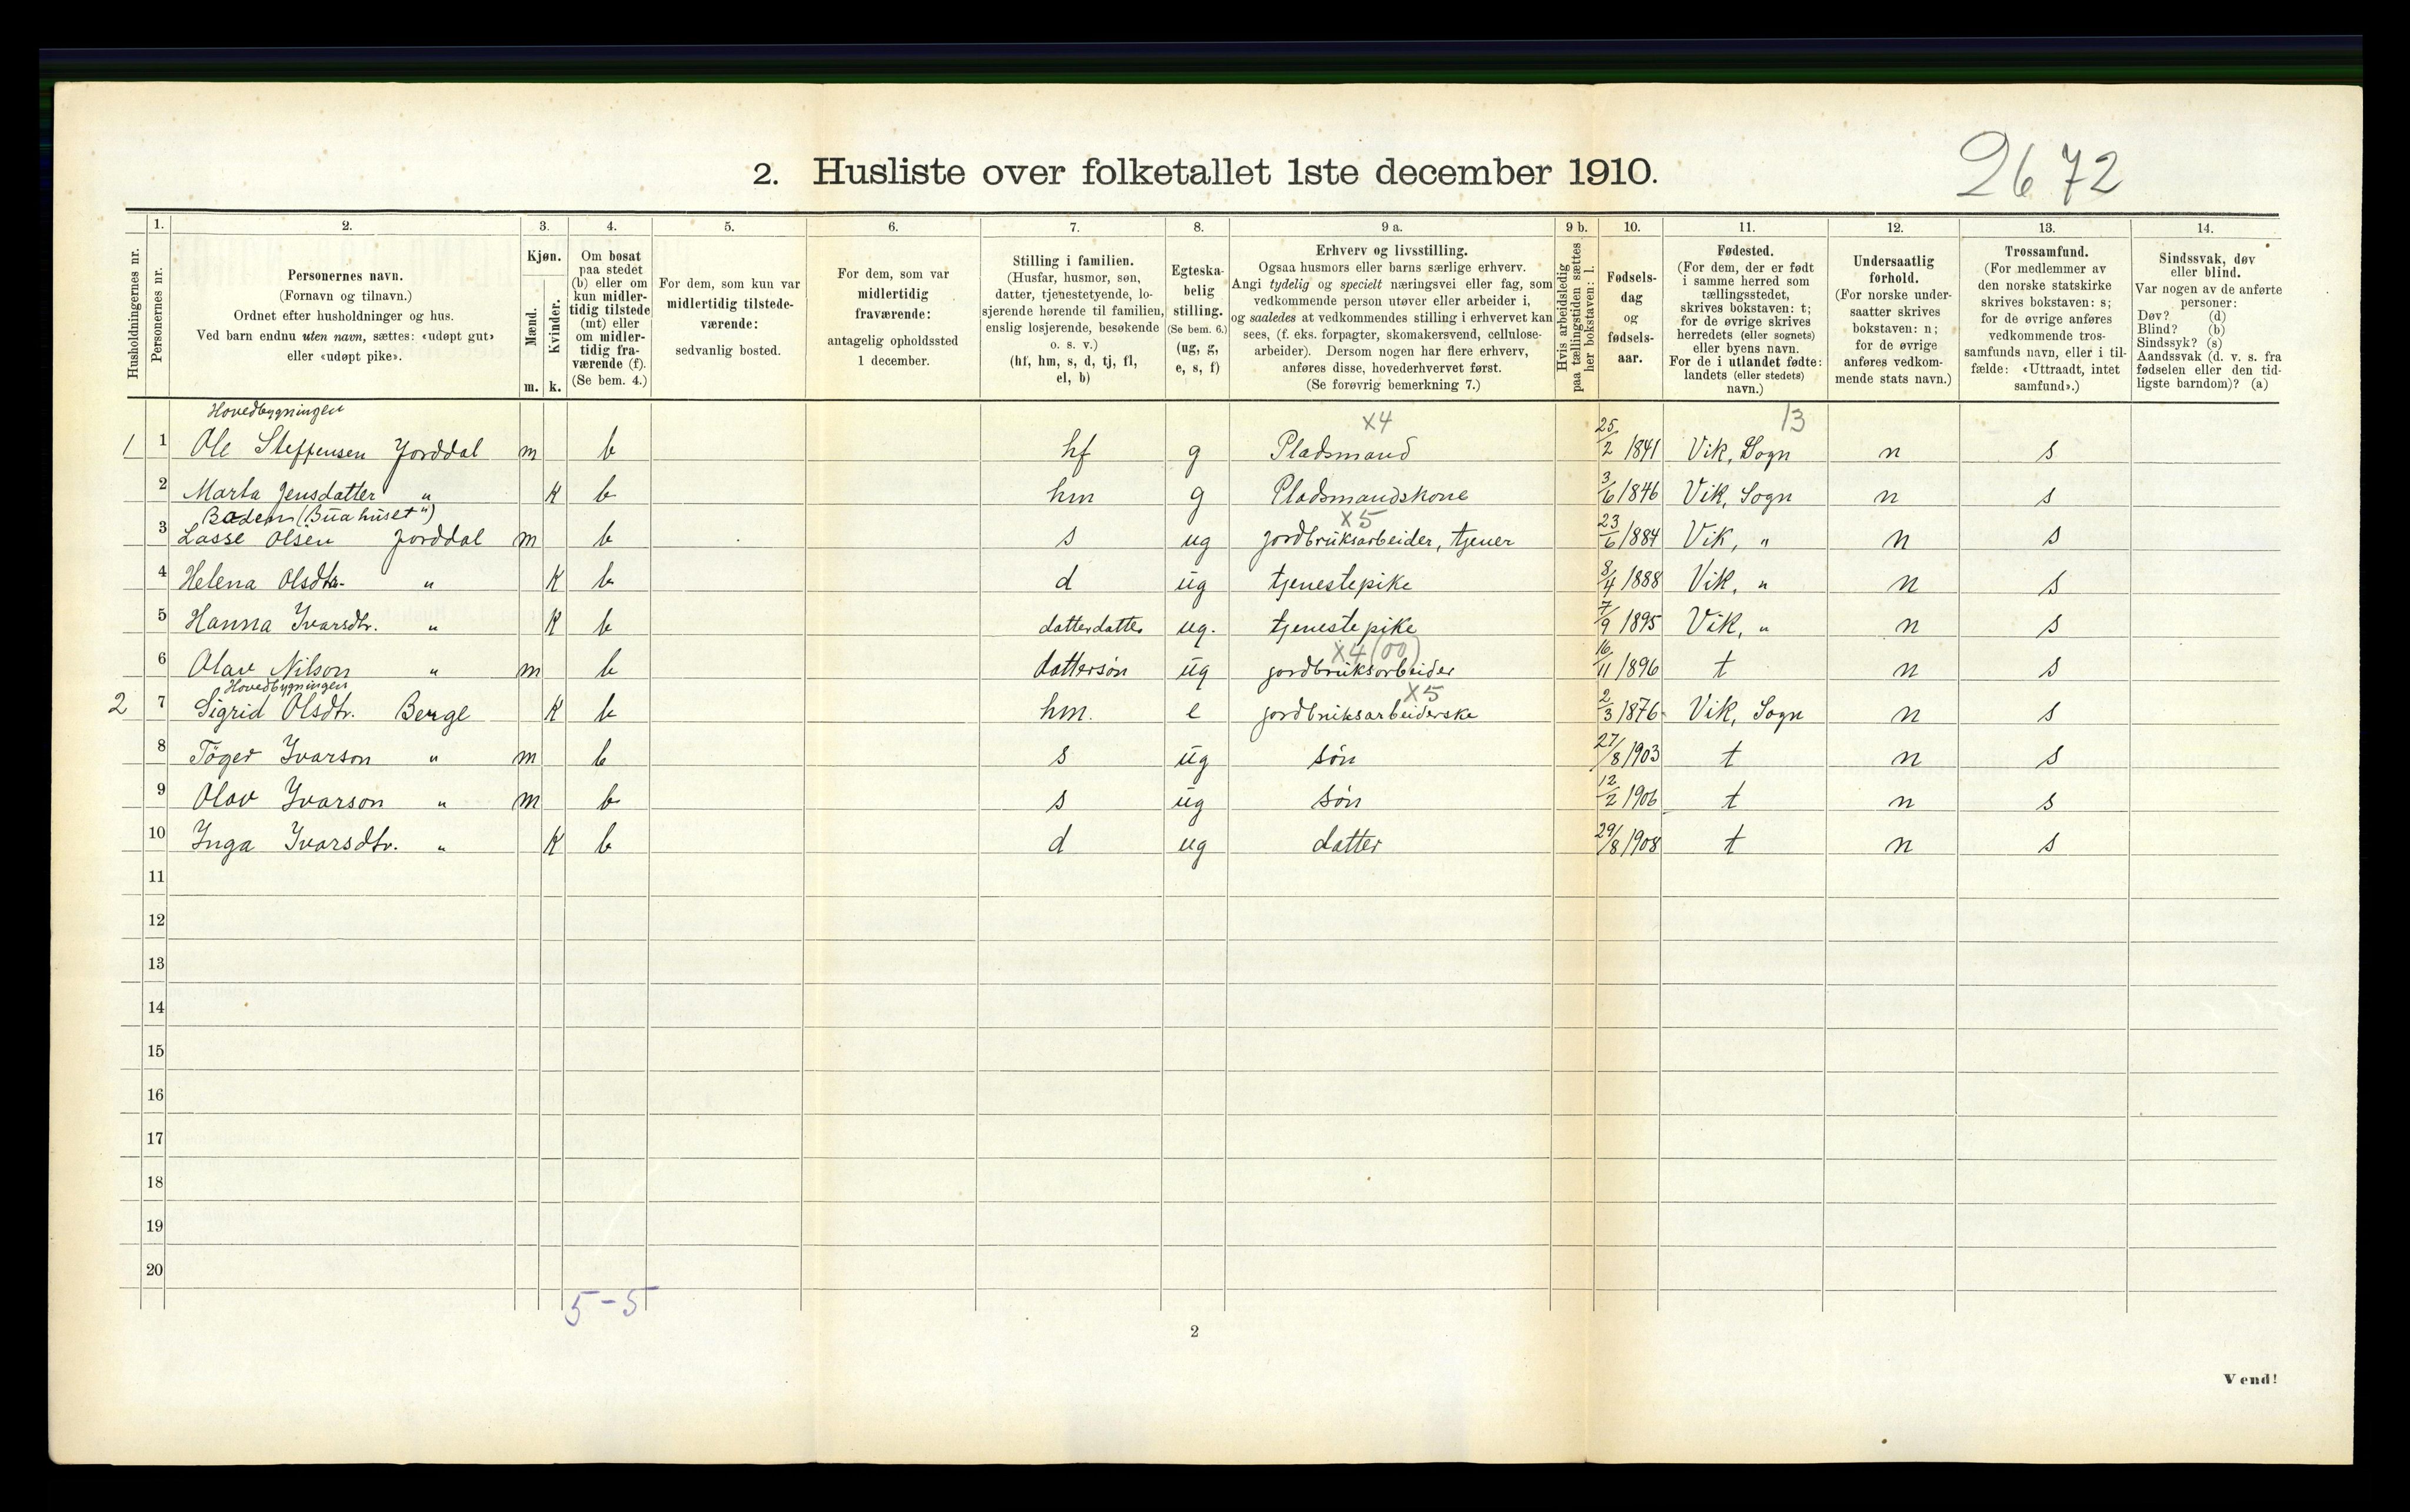 2672
2. Husliste over folketallet 1ste december 1910.
Husholdningernes nr.
1.
Personernes nr.
2.
Personernes navn.
(Fornavn og tilnavn.)
Ordnet efter husholdninger og hus.
Ved barn endnu uten navn, sættes: «udøpt gut»
eller «udøpt pike».
3.
Kjøn.
Mænd.
m.
Kvinder.
k.
4.
Om bosat
paa stedet
(b) eller om
kun midler-
tidig tilstede
(mt) eller
om midler-
tidig fra-
værende (f).
(Se bem. 4.)
5.
For dem, som kun var
midlertidig tilstede-
værende:
sedvanlig bosted.
6.
For dem, som var
midlertidig
fraværende:
antagelig opholdssted
1 december.
7.
Stilling i familien.
(Husfar, husmor, søn,
datter, tjenestetyende, lo-
sjerende hørende til familien,
enslig losjerende, besøkende
o. s. v.)
(hf, hm, s, d, tj, fl,
el, b)
8.
Egteska-
belig
stilling.
(Se bem. 6.)
(ug, g,
e, s, f)
9 a.
Erhverv og livsstilling.
Ogsaa husmors eller barns særlige erhverv.
Angi tydelig og specielt næringsvei eller fag, som
vedkommende person utøver eller arbeider i,
og saaledes at vedkommendes stilling i erhvervet kan
sees, (f. eks. forpagter, skomakersvend, cellulose-
arbeider). Dersom nogen har flere erhverv,
anføres disse, hovederhvervet først.
(Se forøvrig bemerkning 7.)
9 b.
Hvis arbeidsledig
paa tællingstiden sættes
her bokstaven: l.
10.
Fødsels-
dag
og
fødsels-
aar.
11.
Fødested.
(For dem, der er født
i samme herred som
tællingsstedet,
skrives bokstaven: t;
for de øvrige skrives
herredets (eller sognets)
eller byens navn.
For de i utlandet fødte:
landets (eller stedets)
navn.)
12.
Undersaatlig
forhold.
(For norske under-
saatter skrives
bokstaven: n;
for de øvrige
anføres vedkom-
mende stats navn.)
13.
Trossamfund.
(For medlemmer av
den norske statskirke
skrives bokstaven: s;
for de øvrige anføres
vedkommende tros-
samfunds navn, eller i til-
fælde: «Uttraadt, intet
samfund».)
14.
Sindssvak, døv
eller blind.
Var nogen av de anførte
personer:
Døv? (d)
Blind? (b)
Sindssyk? (s)
Aandssvak (d. v. s. fra
fødselen eller den tid-
ligste barndom)? (a)
Hovedbygningen x4 13
1 1 Ole Steffensen Jorddal m b hf g Pladsmand 25/2 1841 Vik, Sogn n s
2 Marta Jensdatter " k b hm g Pladsmandskone 3/6 1846 Vik, Sogn n s
Baden ("Buahuset") x5
3 Lasse Olsen Jorddal m b s ug jordbruksarbeider, tjener 23/6 1884 Vik, " n s
4 Helena Olsdtr. " k b d ug tjenestepike 8/4 1888 Vik, " n s
5 Hanna Ivarsdtr. " k b datterdatter ug. tjenestepike 7/9 1895 Vik, " n s
x4 (00)
6 Olav Nilson " m b dattersøn ug jordbruksarbeider 16/11 1896 t n s
Hovedbygningen x5
2 7 Sigrid Olsdtr. Berge k b hm. e jordbruksarbeiderske 2/3 1876 Vik, Sogn n s
8 Töger Ivarson " m b s ug søn 27/8 1903 t n s
9 Olav Ivarson " m b s ug søn 12/2 1906 t n s
10 Inga Ivarsdtr. " k b d ug datter 29/8 1908 t n s
11
12
13
14
15
16
17
18
19
20
5-5
2
Vend!